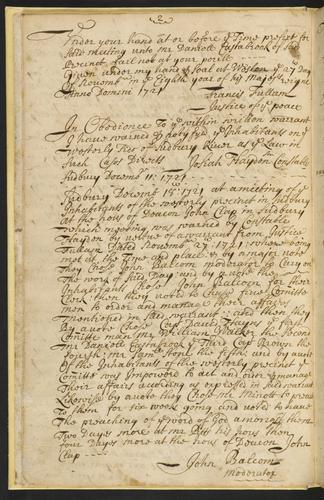 2
Under your hand at or before ye Time prefixt for
Said meeting unto mr Daniell Estabrook of sd
Precinct fail not at your perill
Given under my hand & Seal at Weston ye 27 Day
of Novembr in ye Eighth year of his Majestys reigne
Anno Domini 1721
Francis Fullam
Justice of ye peace
In Obedience To ye within written warrant
I have warned & notyfyed ye Inhabitants on ye
westerly side of Sudbury River as ye Law in
such Cases Directs
Josiah Haydon Constable
Sudbury Decembr 11: 1721
Sudbury Decembr ye 1721 at a meeting of ye
Inhabitants of the westerly precinct in Sudbury
at the hous of Deacon John Clap in Sudbury
which meeting was warned by Constable
Haydon by vertue of a warrant from Justice
Fullam Dated Novembr 1721: where being
met at the Time and place & by a major vote
They Chose John Balcom moderator to Carry on
The work of sd Day and by a vote the
Inhabitants Chose John Balcom for their
Clerk then they voted to Chuse five Comitte
men to order and manage their affaires
mentioned in said warrant: and then they
By a vote Chose Capt David Haynes ye first
Comitte man mr William Walker the Second
mr Daniell Estabrook ye Third Capt Brown the
fourth: mr Saml Stone the fifth: and by a vote
of the Inhabitants in the westerly precinct ye
Comitte was Impowerd to act and order & manage
Their affairs according as expressed in said warrant
Likewise by a vote they Chose Mr Minott to preach
To them for six week going and voted to have
The preaching of ye word of God amongst them
Two Dayes more at mr his hous then
four Dayes more at the hous of Deacon John
Clap
John Balcom
moderator